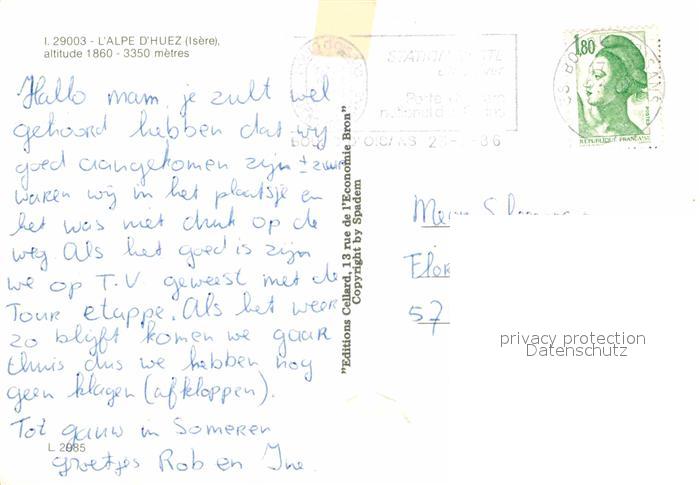 I. 29003 - L'ALPE D'HUEZ (Isère),
altitude 1860 - 3350 mètres
Hallo mam, je zult wel
gehoord hebben dat wij
goed aangekomen zijn ±
waren wij in het plaatsje en
het was niet druk op de
weg. Als het goed is zijn
we op T.V. geweest met de
Tour etappe. Als het weer
zo blijft komen we gaar
thuis dus we hebben nog
geen klagen (afkloppen).
Tot gauw in Someren
L 2985
groetjes Rob en Ine.
"Editions Cellard, 13 rue de l'Economie Bron"
Copyright by Spadem
1,80
REPUBLIQUE FRANÇAISE
57
privacy protection
Datenschutz